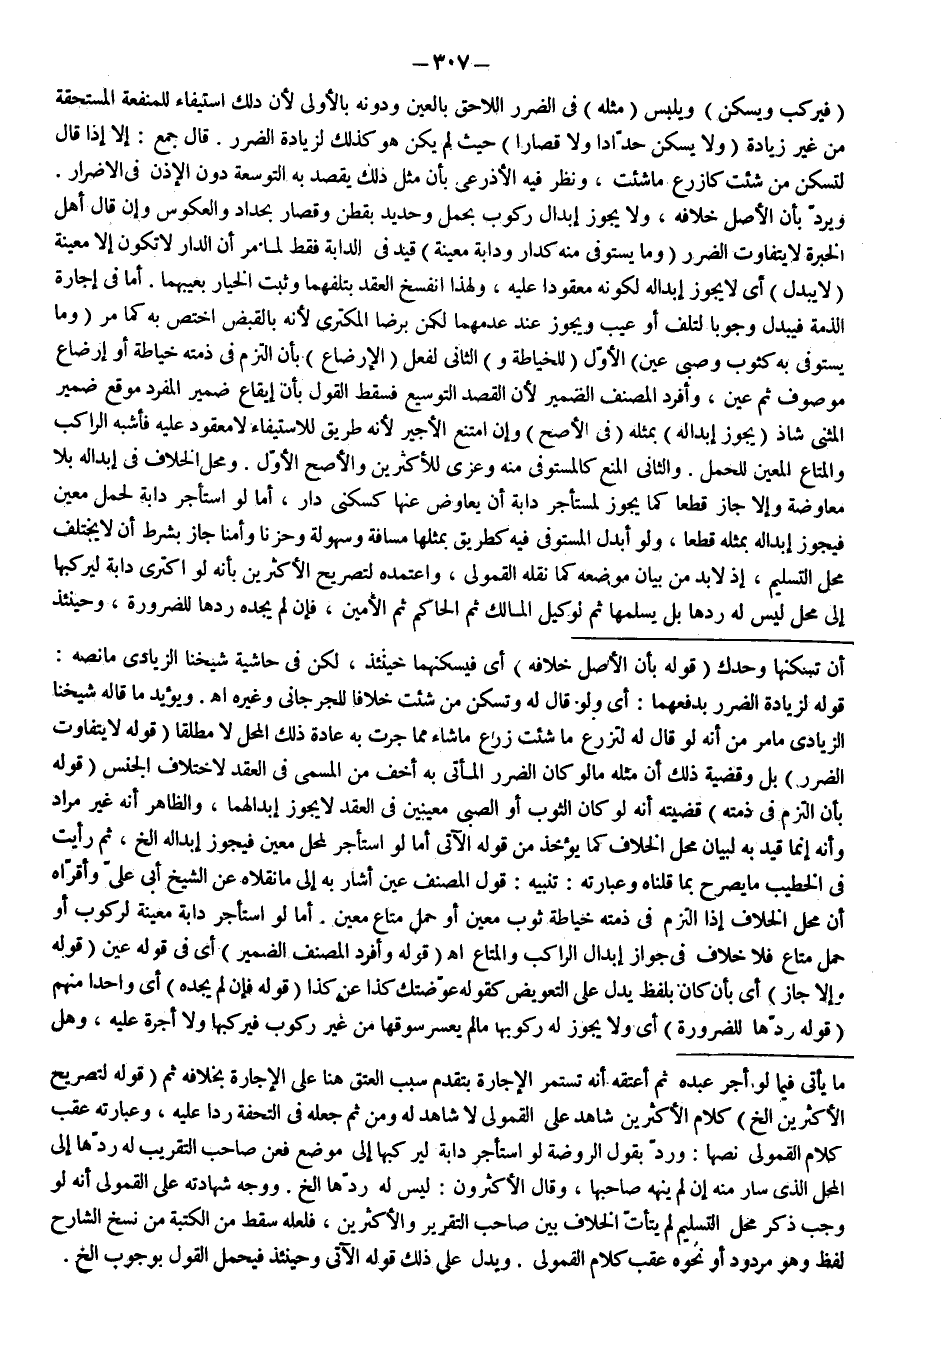 — ٣٠٧ —
( فيركب ويسكن ) ويلبس ( مثله ) فى الضرر اللاحق بالعين ودونه بالأولى لأن ذلك استيفاء للمنفعة المستحقة
من غير زيادة ( ولا يسكن حدّادا ولا قصارا ) حيث لم يكن هو كذلك لزيادة الضرر . قال جمع : إلا إذا قال
لتسكن من شئت كازرع ماشئت ، ونظر فيه الأذرعى بأن مثل ذلك يقصد به التوسعة دون الإذن فى الاضرار .
ويردّ بأن الأصل خلافه ، ولا يجوز إبدال ركوب بحمل وحديد بقطن وقصار بحداد والعكوس وإن قال أهل
الخبرة لايتفاوت الضرر ( وما يستوفى منه كدار ودابة معينة ) قيد فى الدابة فقط لما مر أن الدار لاتكون إلا معينة
( لايبدل ) أى لايجوز إبداله لكونه معقودا عليه ، ولهذا انفسخ العقد بتلفهما وثبت الخيار بعيبهما . أما فى إجارة
الذمة فيبدل وجوبا لتلف أو عيب ويجوز عند عدمهما لكن برضا المكترى لأنه بالقبض اختص به كما مر ( وما
يستوفى به كثوب وصبى عين) الأوّل ( للخياطة و ) الثانى لفعل ( الإرضاع ) بأن التزم فى ذمته خياطة أو إرضاع
موصوف ثم عين ، وأفرد المصنف الضمير لأن القصد التوسيع فسقط القول بأن إيقاع ضمير المفرد موقع ضمير
المثنى شاذ ( يجوز إبداله ) بمثله ( فى الأصح ) وإن امتنع الأجير لأنه طريق للاستيفاء لامعقود عليه فأشبه الراكب
والمتاع المعين للحمل . والثانى المنع كالمستوفى منه وعزى للأكثرين والأصح الأوّل . ومحل الخلاف فى إبداله بلا
معاوضة وإلا جاز قطعا كما يجوز لمستأجر دابة أن يعاوض عنها كسكنى دار ، أما لو استأجر دابة لحمل معين
فيجوز إبداله بمثله قطعا ، ولو أبدل المستوفى فيه كطريق بمثلها مسافة وسهولة وحزنا وأمنا جاز بشرط أن لايختلف
محل التسليم ، إذ لابد من بيان موضعه كما نقله القمولى ، واعتمده لتصريح الأكثرين بأنه لو اكترى دابة ليركبها
إلى محل ليس له ردها بل يسلمها ثم لوكيل المالك ثم الحاكم ثم الأمين ، فإن لم يجده ردها للضرورة ، وحينئذ
أن تسكنها وحدك ( قوله بأن الأصل خلافه ) أى فيسكنهما حينئذ ، لكن فى حاشية شيخنا الزيادى مانصه :
قوله لزيادة الضرر بدفعهما : أى ولو قال له وتسكن من شئت خلافا للجرجانى وغيره اه . ويؤيد ما قاله شيخنا
الزيادى مامر من أنه لو قال له لتزرع ما شئت زراع ماشاء مما جرت به عادة ذلك المحل لا مطلقا ( قوله لايتفاوت
الضرر ) بل وقضية ذلك أن مثله مالو كان الضرر المأتى به أخف من المسمى فى العقد لاختلاف الجنس ( قوله
بأن التزم فى ذمته ) قضيته أنه لو كان الثوب أو الصبى معينين فى العقد لايجوز إبدالهما ، والظاهر أنه غير مراد
وأنه إنما قيد به لبيان محل الخلاف كما يؤخذ من قوله الآتى أما لو استأجر لمحل معين فيجوز إبداله الخ ، ثم رأيت
فى الخطيب مايصرح بما قلناه وعبارته : تنبيه : قول المصنف عين أشار به إلى مانقلاه عن الشيخ أبى علىّ وأقرّاه
أن محل الخلاف إذا التزم فى ذمته خياطة ثوب معين أو حمل متاع معين . أما لو استأجر دابة معينة لركوب أو
حمل متاع فلا خلاف فى جواز إبدال الراكب والمتاع اه ( قوله وأفرد المصنف الضمير ) أى فى قوله عين ( قوله
وإلا جاز ) أى بأن كان بلفظ يدل على التعويض كقوله عوّضتك كذا عن كذا ( قوله فإن لم يجده ) أى واحدا منهم
( قوله ردّها للضرورة ) أى ولا يجوز له ركوبها مالم يعسر سوقها من غير ركوب فيركبها ولا أجرة عليه ، وهل
ما يأتى فيما لو أجر عبده ثم أعتقه أنه تستمر الإجارة بتقدم سبب العتق هنا على الإجارة بخلافه ثم ( قوله لتصريح
الأكثرين الخ ) كلام الأكثرين شاهد على القمولى لا شاهد له ومن ثم جعله فى التحفة ردا عليه ، وعبارته عقب
كلام القمولى نصها : وردّ بقول الروضة لو استأجر دابة ليركبها إلى موضع فعن صاحب التقريب له ردّها إلى
المحل الذى سار منه إن لم ينهه صاحبها ، وقال الأكثرون : ليس له ردّها الخ . ووجه شهادته على القمولى أنه لو
وجب ذكر محل التسليم لم يتأتّ الخلاف بين صاحب التقرير والأكثرين ، فلعله سقط من الكتبة من نسخ الشارح
لفظ وهو مردود أو نحوه عقب كلام القمولى . ويدل على ذلك قوله الآتى وحينئذ فيحمل القول بوجوب الخ .